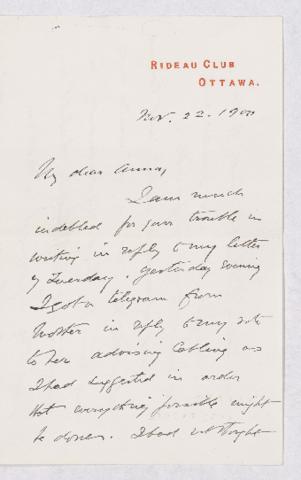 RIDEAU CLUB
OTTAWA.
Nov. 22. 1900
My dear Anna,
I am much
indebted for your trouble in
writing in reply to my letter
of Tuesday. Yesterday evening
I got a telegram from
Mother in reply to my note
to her advising Cabling as
I had suggested in order
that everything possible might
be done. I had not thought